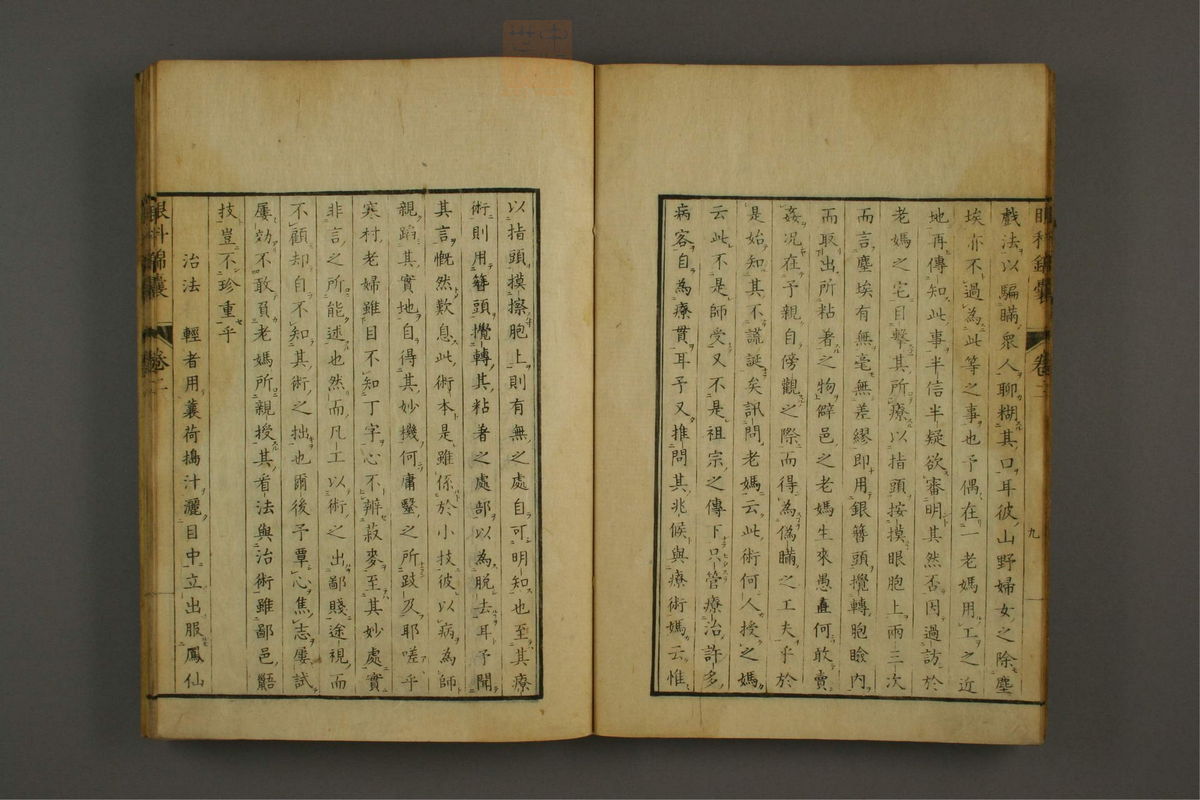 眼科錦囊 卷二 九
戲法以騙瞞衆人聊糊其口耳彼山野婦女之除塵
埃亦不過為此等之事也予偶在一老媽用工之近
地再傳知此事半信半疑欲審明其然否因過訪於
老媽之宅目擊其所療以指頭按摸眼胞上兩三次
而言塵埃有無毫無差繆即用銀簪頭攪轉胞瞼内
而取出所粘著之物僻邑之老媽生來愚直何敢賣
姦况在予親自傍觀之際而得為偽瞞之工夫乎於
是始知其不謊誕矣訊問老媽云此術何人授之媽
云此不是師受又不是祖宗之傳下只管療治許多
病客自為療貫耳予又推問其兆候與療術媽云惟
以指頭摸擦胞上則有無之處自可明知也至其療
術則用簪頭攪轉其粘著之處部以為脫去耳予聞
其言慨然歎息此術本是雖係於小技彼以病為師
親蹈其實地自得其妙機何庸醫之所跂及耶嗟乎
寒村老婦雖目不知丁字心不辨菽麥至其妙處實
非言之所能述也然而凡工以術之出鄙賤途視而
不顧却自不知其術之拙也爾後予覃心焦志屢試
屢効不敢負老媽所親授其看法與治術雖鄙邑𩔖
技豈不珍重乎
治法 輕者用蘘荷搗汁灑目中立出服鳳仙
眼科錦囊 卷二